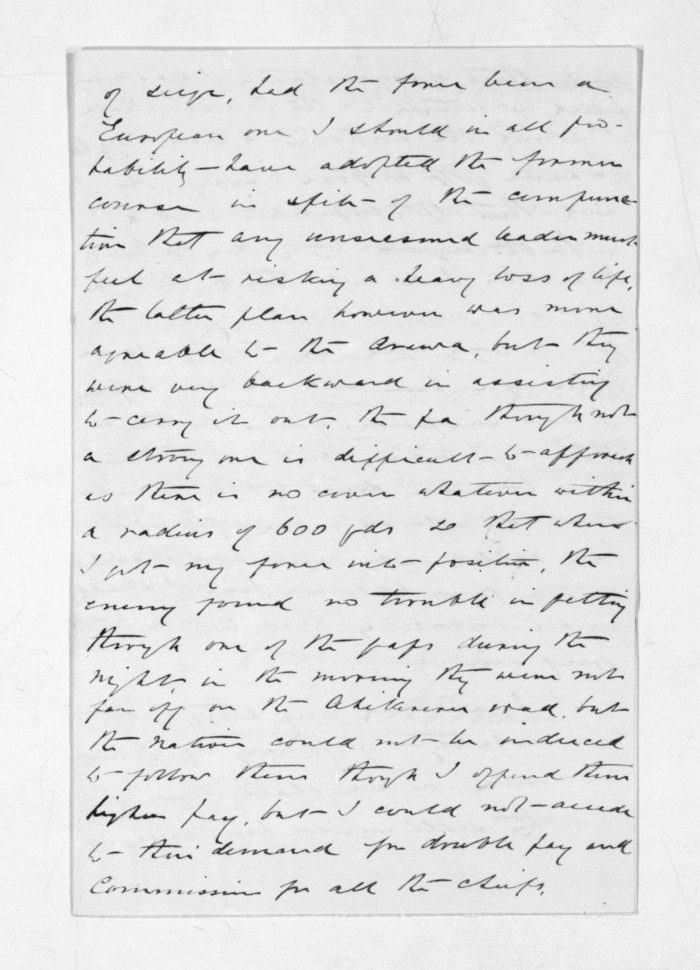 of siege, had the force been a
European one I should in all pro-
bability - have adopted the former
course in spite of the compunc-
tion that any unseasoned leader must
feel at risking a heavy loss of life,
the latter plan however was more
agreeable to the Arawa, but they
were very backward in assisting
to carry it out. the pa though not
a strong one is difficult to approach
as there is no cover whatever within
a radius of 600 yds so that when
I got my force into position, the
enemy found no trouble in getting
through one of the gaps during the
night, in the morning they were not
far off on the Ahikereru road, but
the natives could not be induced
to follow them though I offered them
higher pay, but I could not accede
to their demand for double pay and
Commission for all the chiefs.